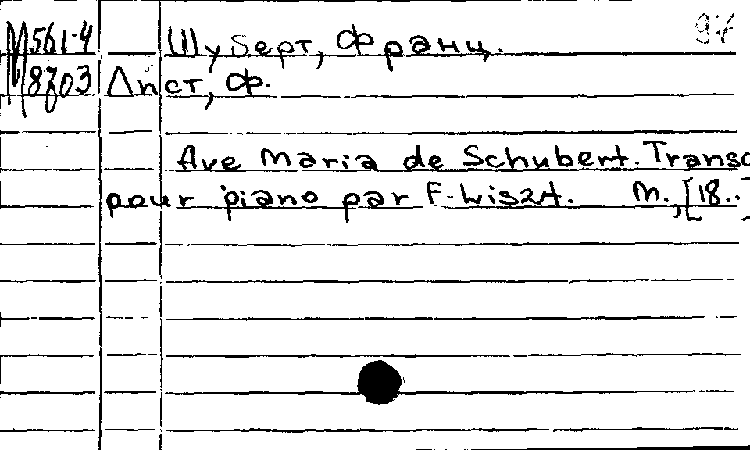 М561-4 Шуберт, Франц. 97
М8703 Лист, Ф.
Ave Maria de Schubert. Transc
pour piano par F. Liszt. М., [18..